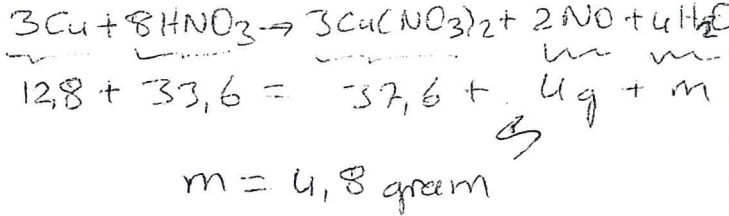 3Cu + 8HNO3 → 3Cu(NO3)2 + 2NO + 4H2O
12,8 + 33,6 = 37,6 + 4g + m
m = 4,8 gram